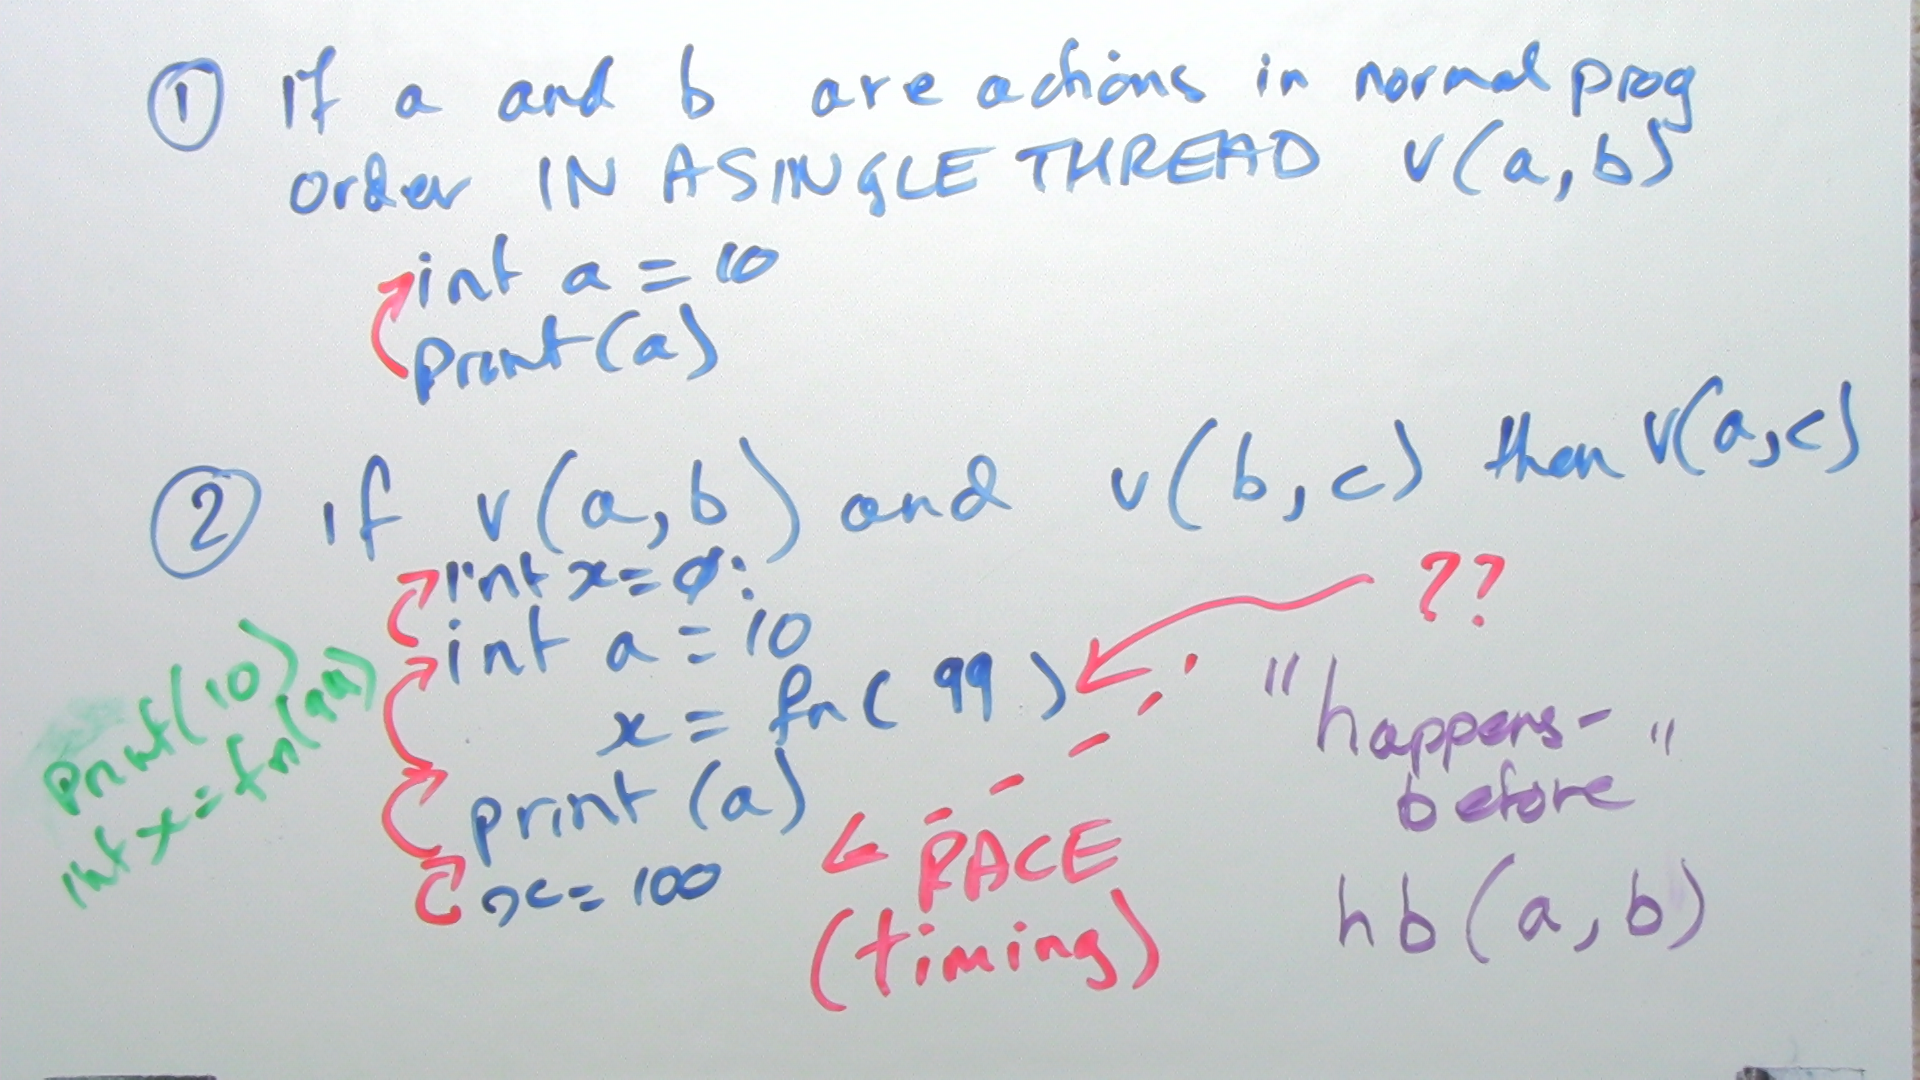 ① if a and b are actions in normal prog
order IN A SINGLE THREAD v(a,b)
int a = 10
print(a)
② if v(a,b) and v(b,c) then v(a,c)
int x=0;
int a = 10
x = fn(99)
print(a)
x= 100
print(10)
int x=fn(99)
??
RACE
(timing)
"happens-"
before
hb(a,b)